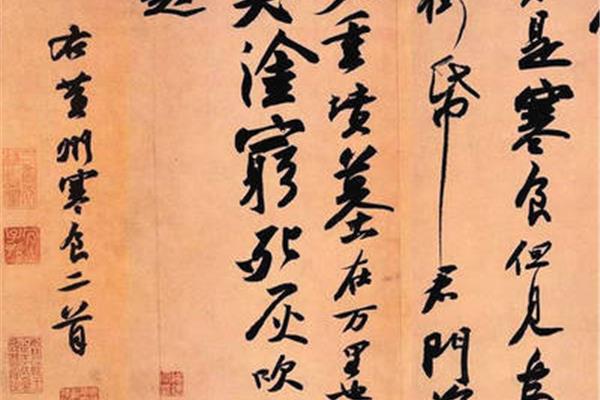 是寒食但見烏
銜帋君門深
重墳墓在万里也
哭塗窮死灰吹
起
右黄州寒食二首